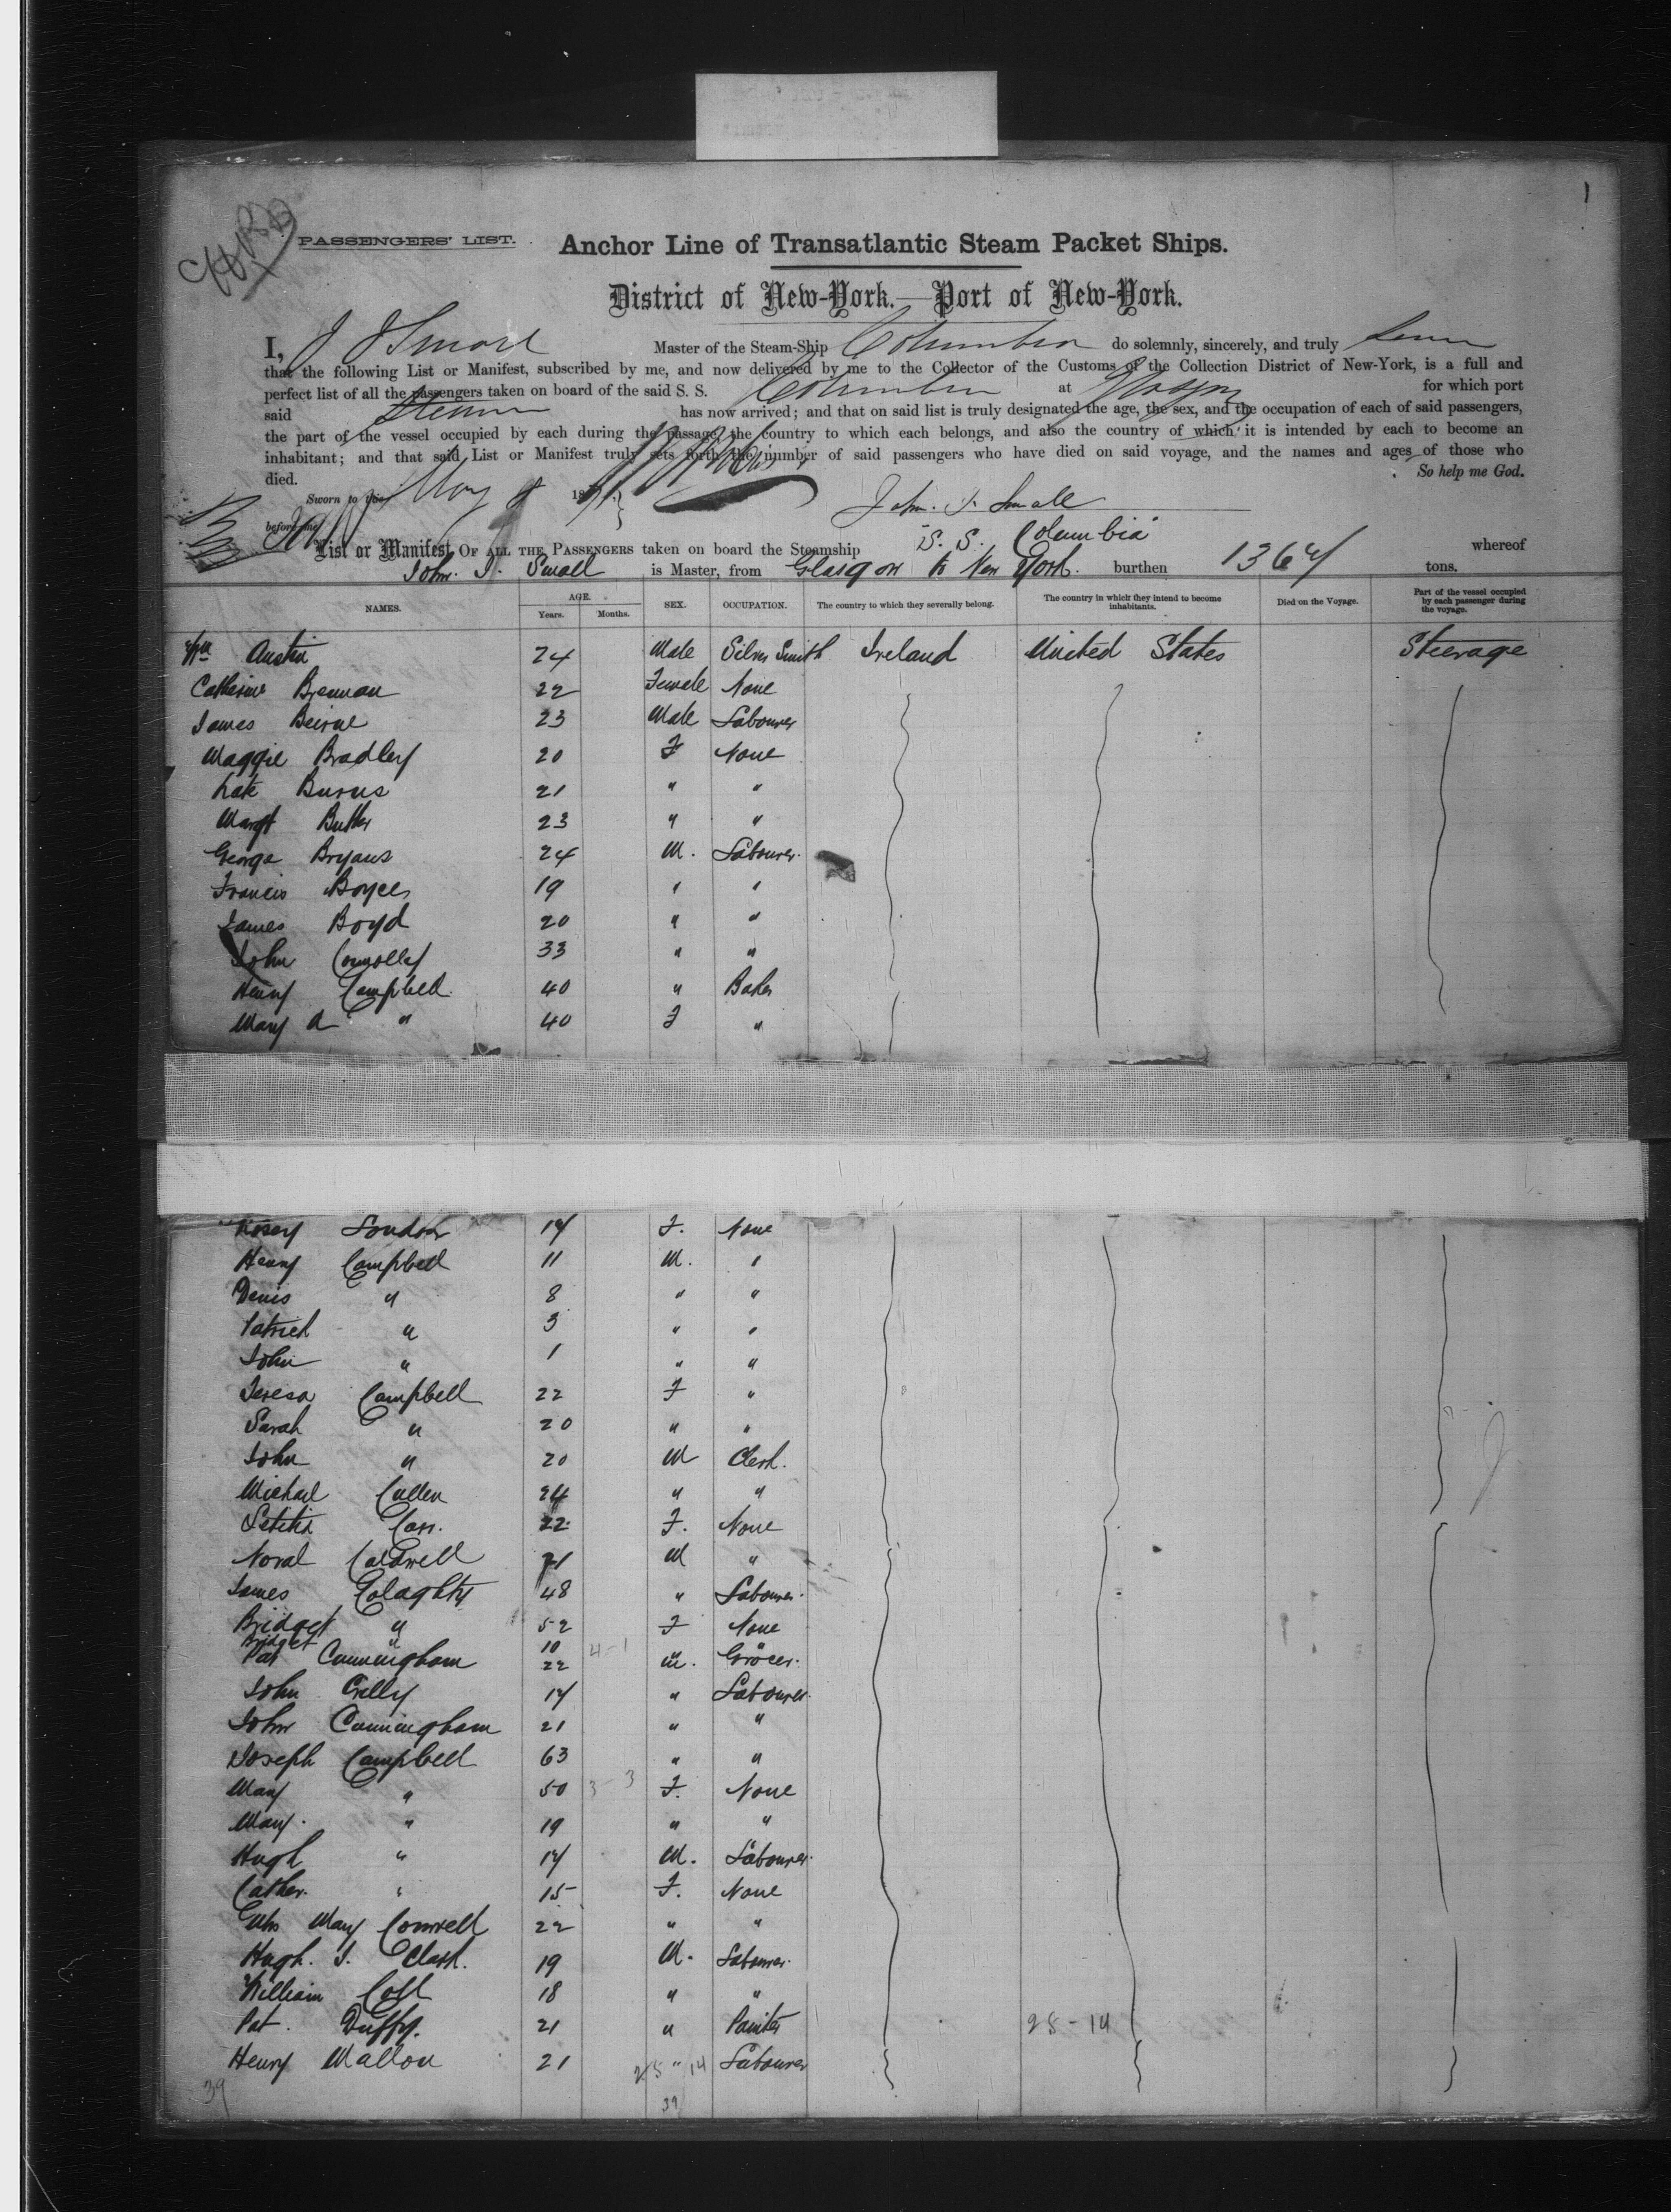 1
PASSENGERS' LIST.
Anchor Line of Transatlantic Steam Packet Ships.
District of New-York.—Port of New-York.
I, J J Small Master of the Steam-Ship Columbia do solemnly, sincerely, and truly
that the following List or Manifest, subscribed by me, and now delivered by me to the Collector of the Customs of the Collection District of New-York, is a full and
perfect list of all the passengers taken on board of the said S. S. Columbia at Glasgow for which port
said Steamer has now arrived; and that on said list is truly designated the age, the sex, and the occupation of each of said passengers,
the part of the vessel occupied by each during the passage, the country to which each belongs, and also the country of which it is intended by each to become an
inhabitant; and that said List or Manifest truly sets forth the number of said passengers who have died on said voyage, and the names and ages of those who
died. So help me God.
Sworn to this May 8 187
before me
John. J. Small
List or Manifest OF ALL THE PASSENGERS taken on board the Steamship S. S. Columbia whereof
John. J. Small is Master, from Glasgow to New York. burthen 1364 tons.
NAMES. AGE. Years. Months. SEX. OCCUPATION. The country to which they severally belong. The country in which they intend to become inhabitants. Died on the Voyage. Part of the vessel occupied by each passenger during the voyage.
Wm Austin 24 Male Silver Smith Ireland United States Steerage
Catherine Brennan 22 Female None
James Beirne 23 Male Labourer
Maggie Bradley 20 F None
Kate Burns 21 " "
Margt Butler 23 " "
George Bryans 24 M. Labourer.
Francis Boyce 19 " "
James Boyd 20 " "
John Connolly 33 " "
Henry Campbell 40 " Baker
Mary A " 40 F "
Rosey London 17 F. None
Henry Campbell 11 M. "
Denis " 8 " "
Patrick " 3 " "
John " 1 " "
Teresa Campbell 22 F "
Sarah " 20 " "
John " 20 M Clerk.
Michael Cullen 24 " "
Letitia Carr. 22 F. None
Noval Caldwell 21 M "
James Colaghty 48 " Labourer.
Bridget " 52 F None
Bridget " 10 " "
Pat Cunningham 22 4-1 M. Grocer.
John Crilly 17 " Labourer.
John Cunningham 21 " "
Joseph Campbell 63 " "
Mary " 50 3-3 F. None
Mary. " 19 " "
Hugh " 17 M. Labourer.
Cather. " 15 F. None
Mrs Mary Connell 22 " "
Hugh. J. Clark. 19 M. Labourer.
William Coll 18 " "
Pat. Duffy. 21 " Painter 25-14
Henry Mallon 21 25 " 14 Labourer
39 39